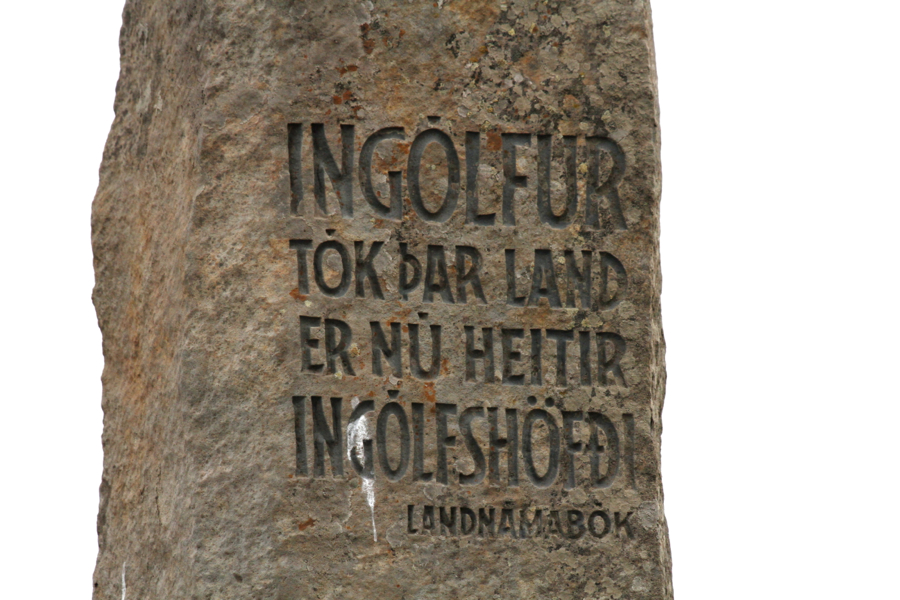 INGÓLFUR
TÓK ÞAR LAND
ER NÚ HEITIR
INGÓLFSHÖFÐI
LANDNÁMABÓK